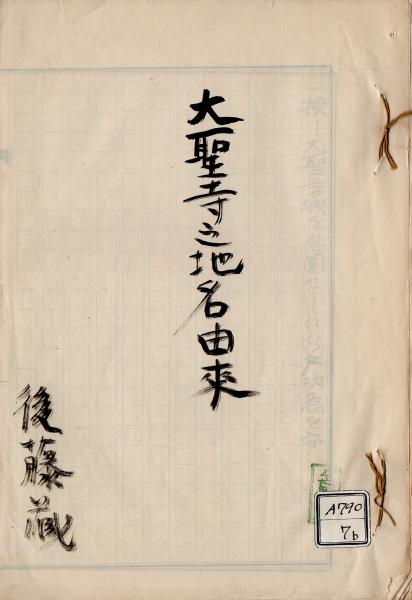 大聖寺之地名由來
後藤蔵
A790
7b